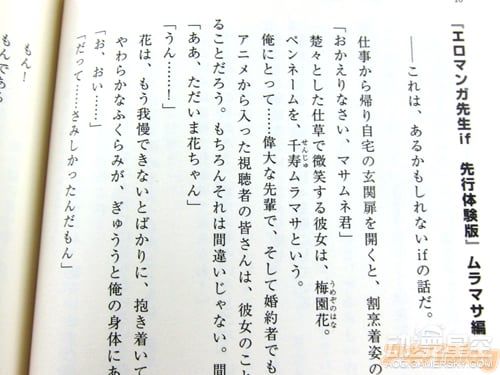 『エロマンガ先生if　先行体験版』ムラマサ編
――これは、あるかもしれないifの話だ。
仕事から帰り自宅の玄関扉を開くと、割烹着姿の
「おかえりなさい、マサムネ君」
楚々とした仕草で微笑する彼女は、梅園花。
うめぞのはな
ペンネームを、千寿ムラマサという。
せんじゅ
俺にとって……偉大な先輩で、そして婚約者でも
アニメから入った視聴者の皆さんは、彼女のこと
ることだろう。もちろんそれは間違いじゃない。間
「ああ、ただいま花ちゃん」
「うん……！」
花は、もう我慢できないとばかりに、抱き着いて
やわらかなふくらみが、ぎゅううと俺の身体にあ
「お、おい……」
「だって……さみしかったんだもん」
もん！
もんである
ACGER.COM